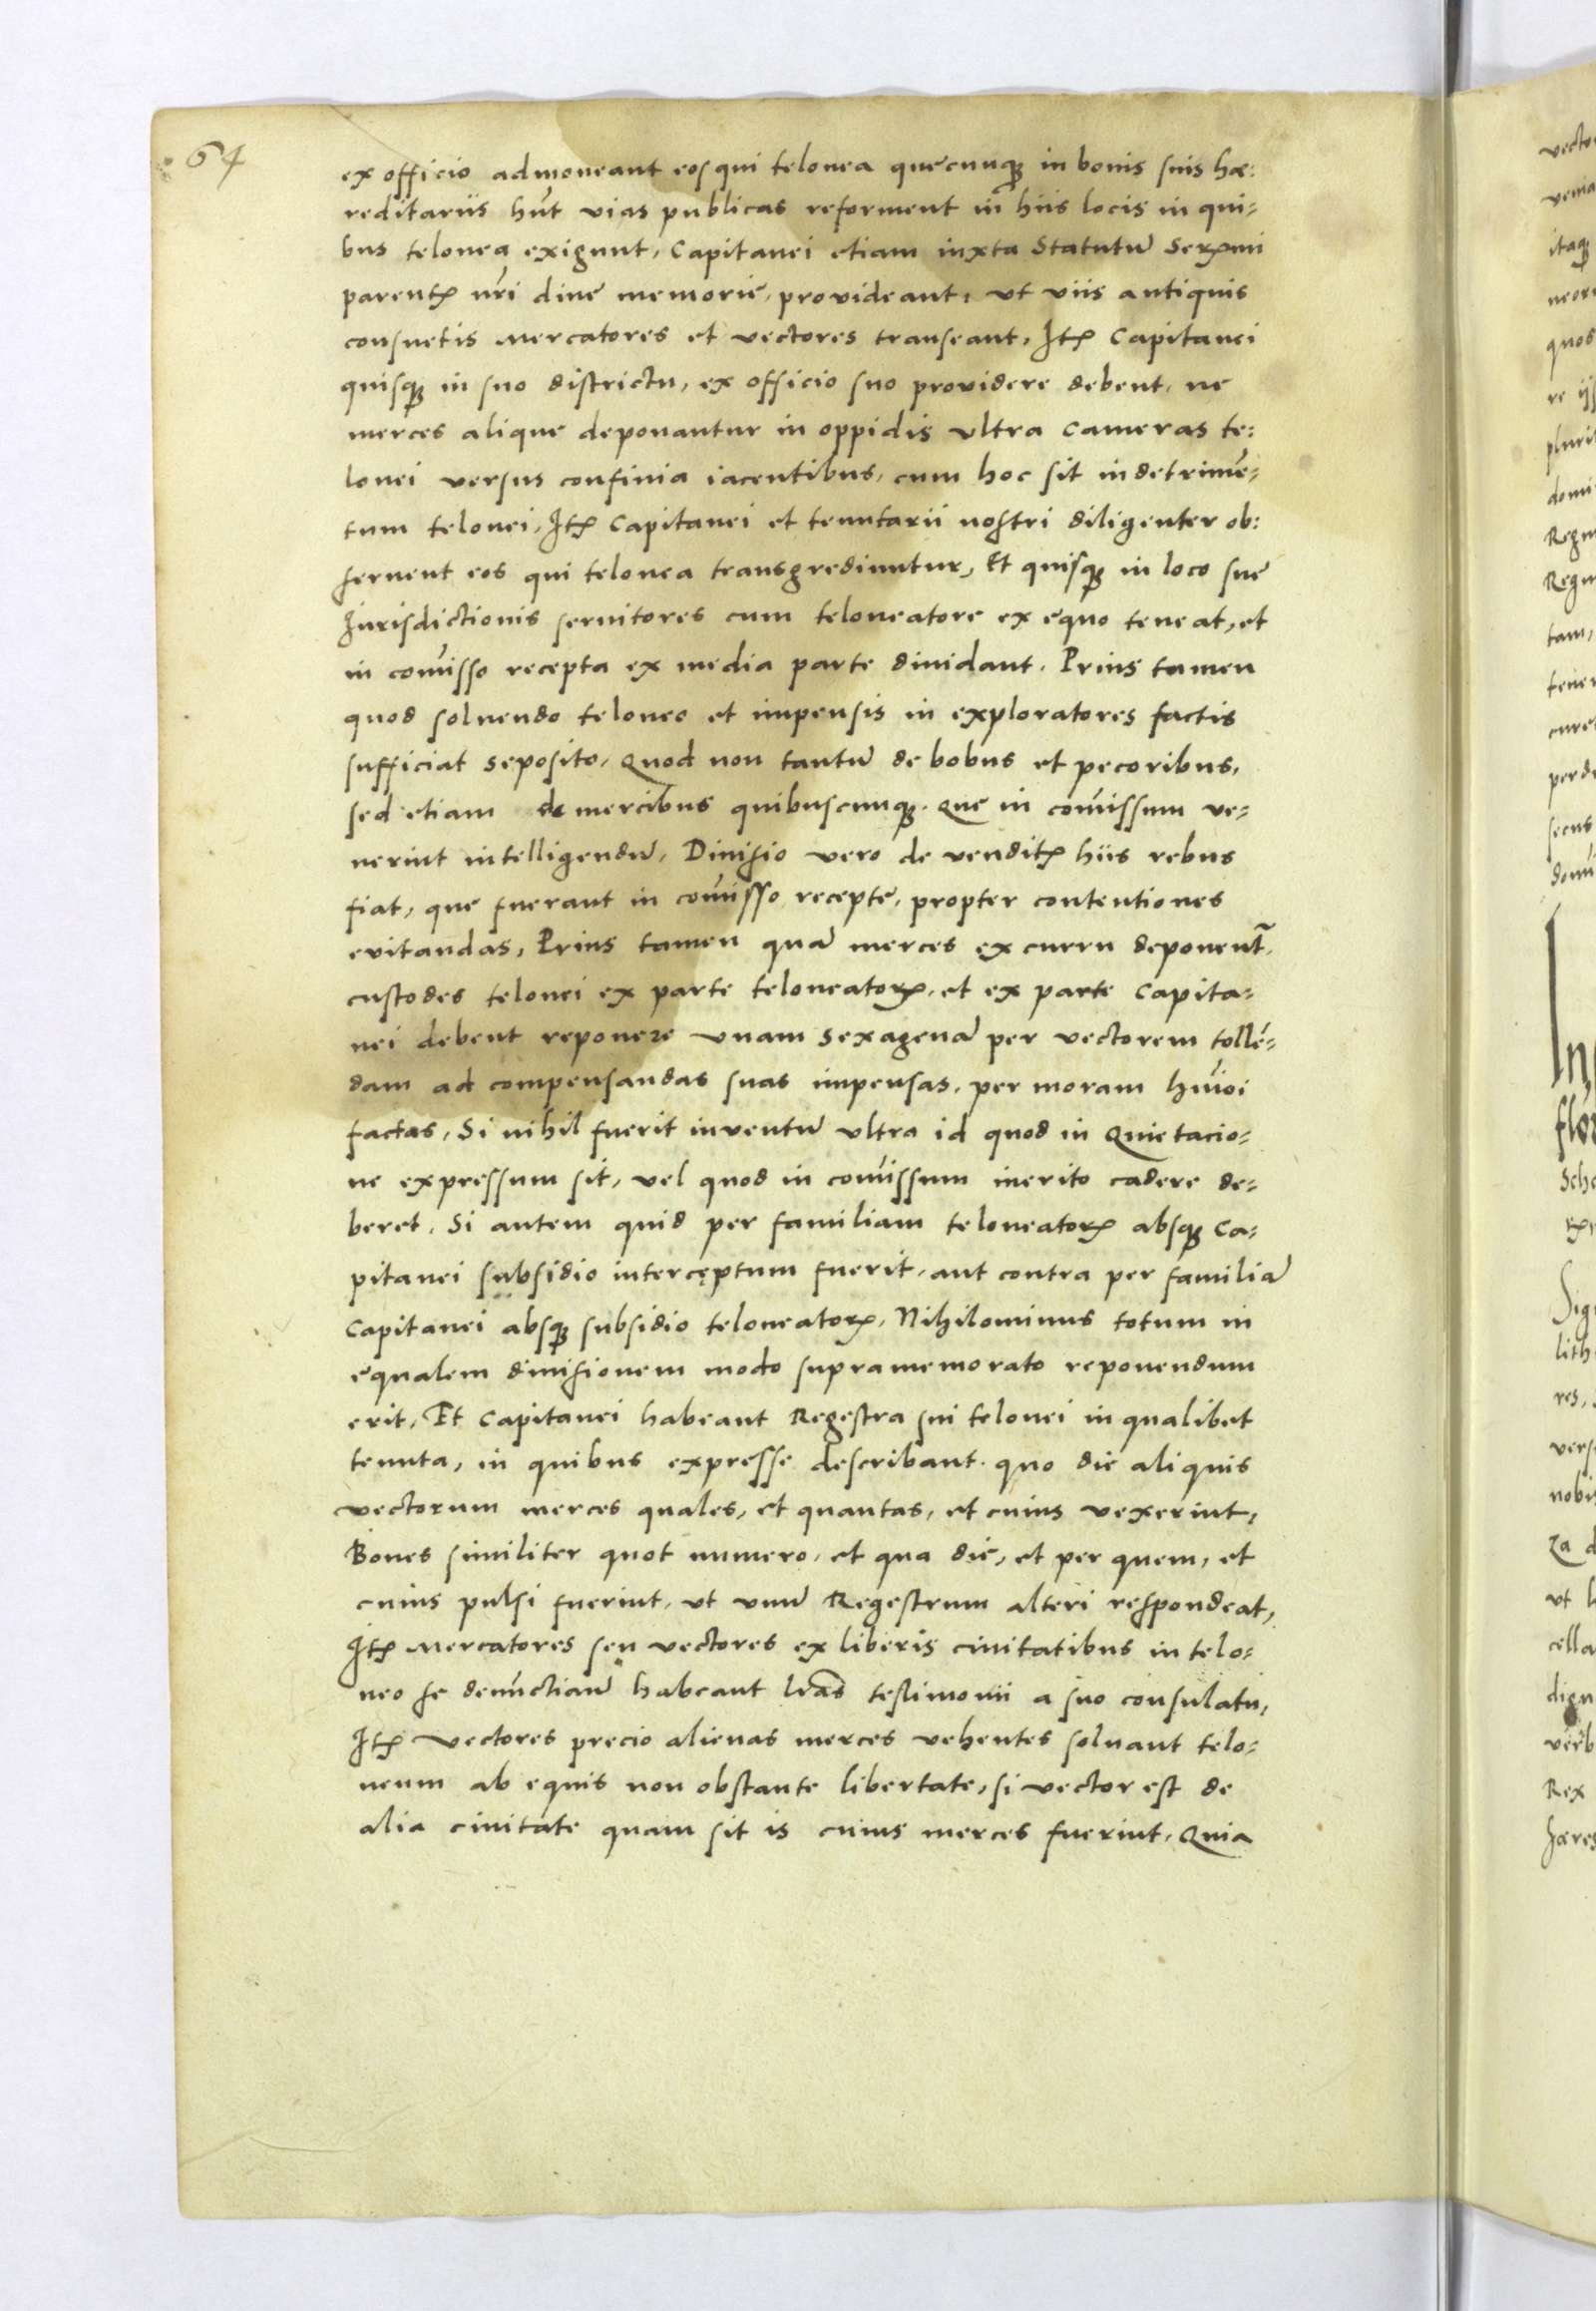 64
ex officio admoneant eos qui telonea quecunqꝫ in bonis suis hæ:
reditariis hñt vias publicas reforment in hiis locis in qui-
bus telonea exigunt, Capitanei etiam iuxta Statutũ Serꝫmi
parentꝫ nr̃i diue memorie, prouideant, vt viis antiquis
consuetis mercatores et vectores transeant, Itꝫ Capitanei
quisqꝫ in suo districtu, ex officio suo providere debent, ne
merces alique deponantur in oppidis vltra cameras te:
lonei versus confinia iacentibus, cum hoc sit in detrimẽ-
tum telonei, Itꝫ Capitanei et tenutarii nostri diligenter ob:
seruent eos qui telonea transgrediuntur, Et quisqꝫ in loco sue
Jurisdictionis seruitores cum teloneatore ex equo teneat, et
in com̃isso recepta ex media parte diuidant. Prius tamen
quod soluendo teloneo et impensis in exploratores factis
sufficiat seposito, Quod non tantũ de bobus et pecoribus,
sed etiam de mercibus quibuscunqꝫ. Que in com̃issum ve-
nerint intelligendũ, Diuisio vero de venditꝫ hiis rebus
fiat, que fuerant in com̃isso recepte, propter contentiones
evitandas, Prius tamen quã merces ex curru deponent̃.
custodes telonei ex parte teloneatorꝫ, et ex parte Capita-
nei debent reponere vnam sexagenã per vectorem tollẽ-
dam ad compensandas suas impensas, per moram hm̃oi
factas, Si nihil fuerit inventũ vltra id quod in Quietacio-
ne expressum sit, vel quod in com̃issum merito cadere de-
beret. Si autem quid per familiam teloneatorꝫ absqꝫ Ca-
pitanei subsidio interceptum fuerit, aut contra per familiã
Capitanei absqꝫ subsidio teloneatorꝫ, Nihilominus totum in
equalem diuisionem modo supramemorato reponendum
erit, Et Capitanei habeant Regestra sui telonei in qualibet
tenuta, in quibus expresse describant. quo die aliquis
vectorum merces quales, et quantas, et cuius vexerint,
Boues similiter quot numero, et qua die, et per quem, et
cuius pulsi fuerint, vt vnũ Regestrum alteri respondeat,
Itꝫ Mercatores seu vectores ex liberis ciuitatibus in telo-
neo se denunctiantĩ habeant lr̃as testimonii a suo consulatu,
Itꝫ vectores precio alienas merces vehentes soluant telo-
neum ab equis non obstante libertate, si vector est de
alia ciuitate quam sit is cuius merces fuerint, Quia